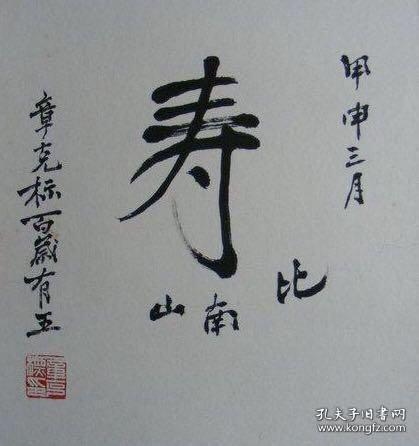 甲申三月
寿
比南山
章克标百岁有五
孔夫子旧书网
www.kongfz.com